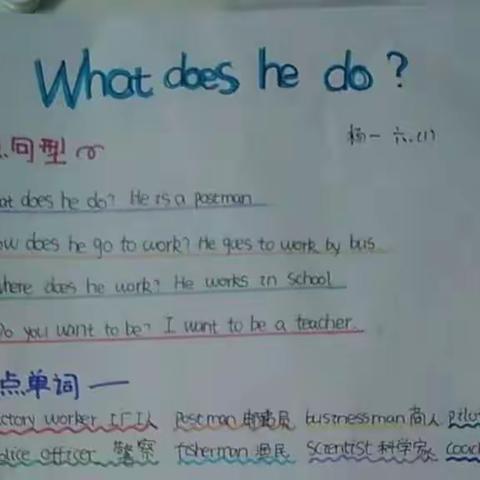 What does he do?
杨一 六.(1)
句型
does he do? He is a postman
does he go to work? He goes to work by bus
does he work? He works in school
you want to be? I want to be a teacher.
点单词
worker 工厂工人 Postman 邮递员 businessman 商人
officer 警察 fisherman 渔民 Scientist 科学家